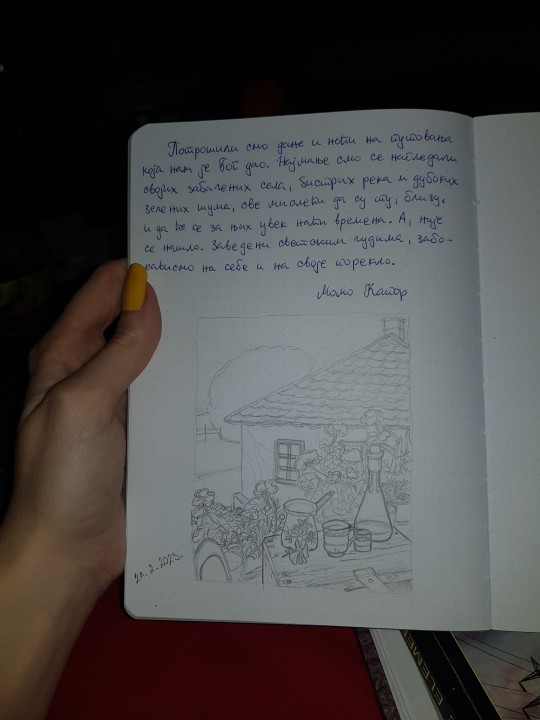 Потрошили смо дане и ноћи на путовања
која нам је Бог дао. Најмање смо се нагледали
својих забачених села, бистрих река и дубоких
зелених шума, све мислећи да су ту, близу,
и да ће се за њих увек наћи времена. А, није
се нашло. Заведени светским чудима, забо-
рависмо на себе и на своје порекло.
Момо Капор
21.2.2023.
ELEME